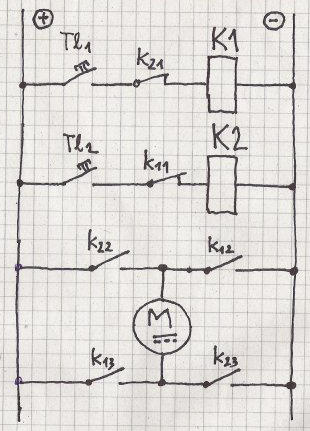 + −
Tl1 K21 K1
Tl2 K11 K2
K22 K12
M
K13 K23